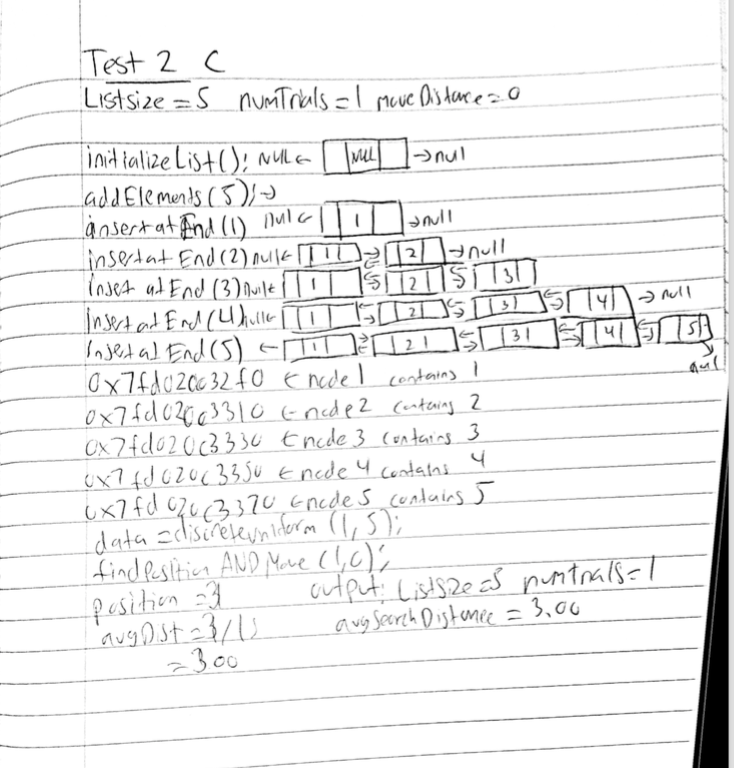 Test 2 C
Listsize = 5 numTrials = 1 moveDistance = 0
initializeList(): NULL ← NULL → nul
addElements(5); →
insert at End (1) nul ← 1 → null
insert at End (2) null ← 1 ⇄ 2 → null
insert at End (3) null ← 1 ⇆ 2 ⇆ 3
insert at End (4) null ← 1 ⇆ 2 ⇆ 3 ⇆ 4 → null
insert at End (5) ← 1 ⇄ 2 ⇆ 3 ⇆ 4 ⇆ 5
null
0x7fd020c32f0 ← node 1 contains 1
0x7fd020c3310 ← node 2 contains 2
0x7fd020c3330 ← node 3 contains 3
0x7fd020c3350 ← node 4 contains 4
0x7fd020c3370 ← node 5 contains 5
data = discreteuniform (1, 5);
findPosition AND Move (1,0);
position = 3 output: ListSize = 5 numtrials = 1
avgDist = 3/1 avgSearchDistance = 3.00
= 3.00